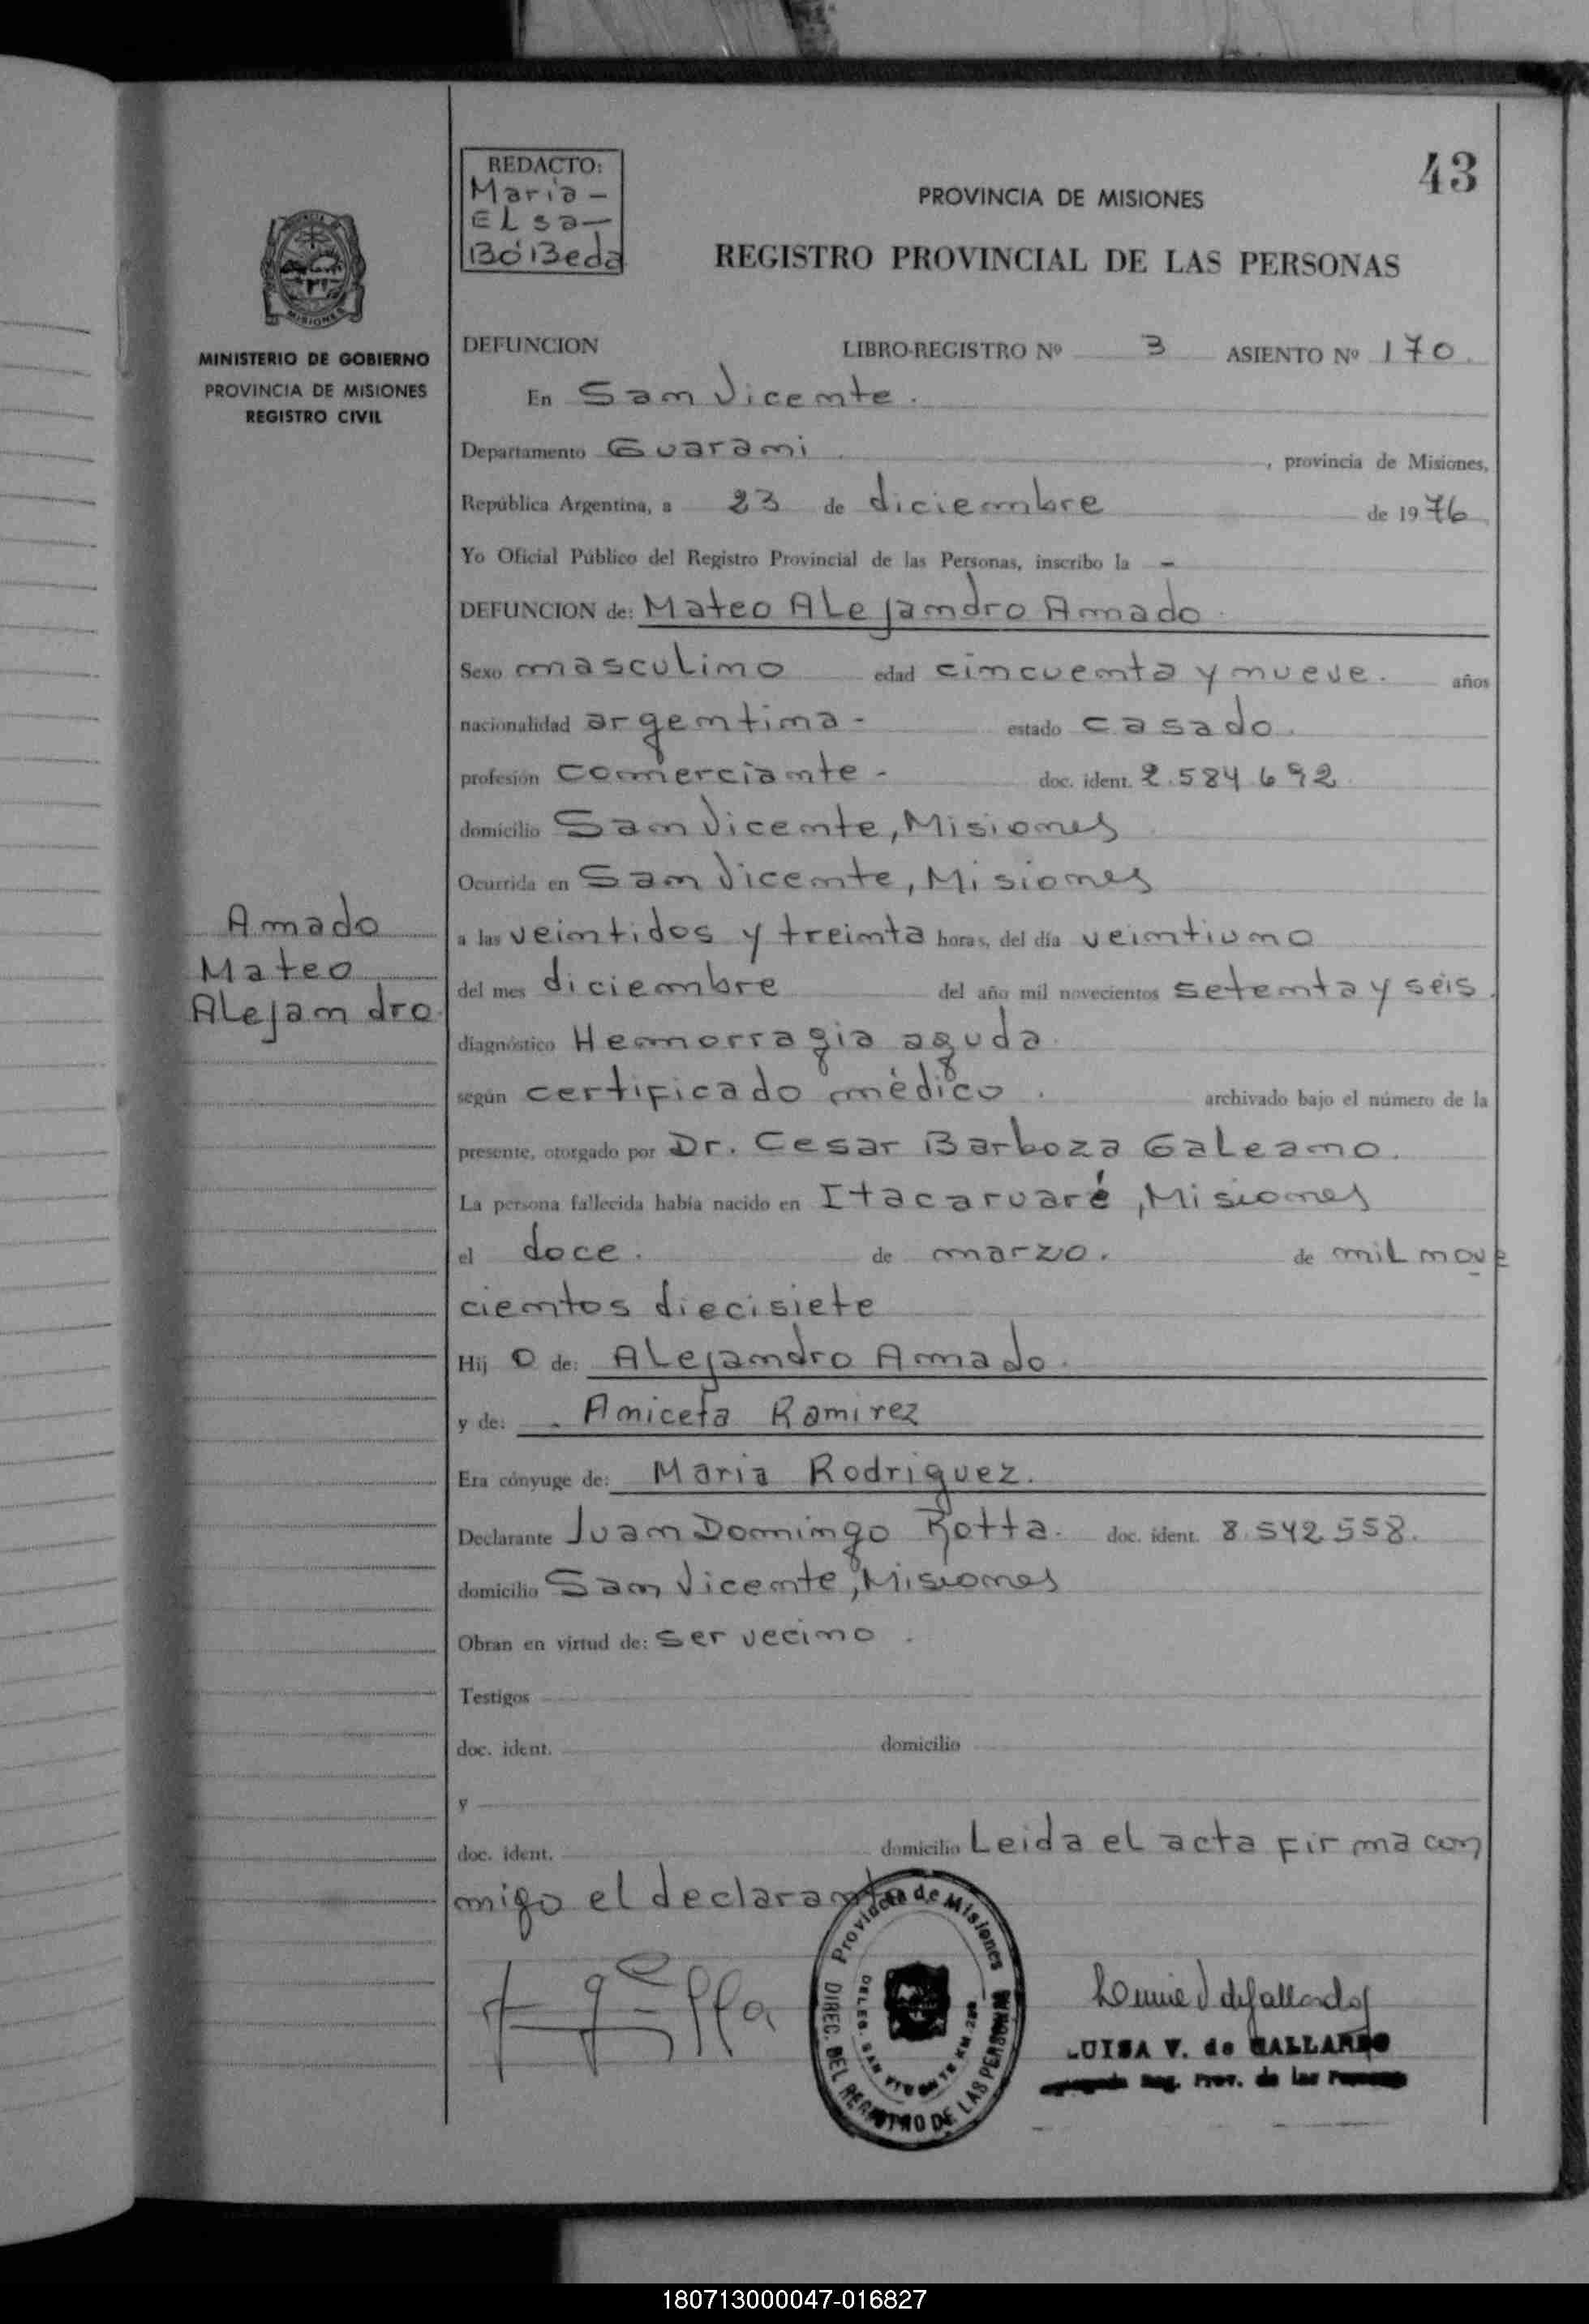 43
REDACTO:
Maria-
ELsa-
BóBeda
PROVINCIA DE MISIONES
REGISTRO PROVINCIAL DE LAS PERSONAS
MISIONES
MINISTERIO DE GOBIERNO
PROVINCIA DE MISIONES
REGISTRO CIVIL
DEFUNCION LIBRO-REGISTRO Nº 3 ASIENTO Nº 170.
En San Vicente.
Departamento Guarani , provincia de Misiones,
República Argentina, a 23 de diciembre de 1976
Yo Oficial Público del Registro Provincial de las Personas, inscribo la -
DEFUNCION de: Mateo ALejandro Amado
Sexo masculino edad cincuenta y nueve. años
nacionalidad argentina - estado casado.
profesión comerciante - doc. ident. 2.584.692
domicilio San Vicente, Misiones
Ocurrida en San Vicente, Misiones
a las veintidos y treinta horas, del día veintiuno
del mes diciembre del año mil novecientos setenta y seis.
diagnóstico Hemorragia aguda.
según certificado médico. archivado bajo el número de la
presente, otorgado por Dr. Cesar Barboza Galeano.
La persona fallecida había nacido en Itacaruaré, Misiones
el doce. de marzo. de mil nove
cientos diecisiete
Hij o de: ALejandro Amado.
y de: . Aniceta Ramirez
Era cónyuge de: Maria Rodriguez.
Declarante Juan Domingo Rotta. doc. ident. 8.542.558.
domicilio San Vicente, Misiones
Obran en virtud de: ser vecino.
Testigos
doc. ident. domicilio
y
doc. ident. domicilio Leida el acta firma con
migo el declarante
Amado
Mateo
ALejandro.
Provincia de Misiones
DIREC. DEL REGISTRO DE LAS PERSONAS
DELEG. SAN VTE KM.
LUISA V. de GALLARDO
Reg. Prov. de las Personas
180713000047-016827